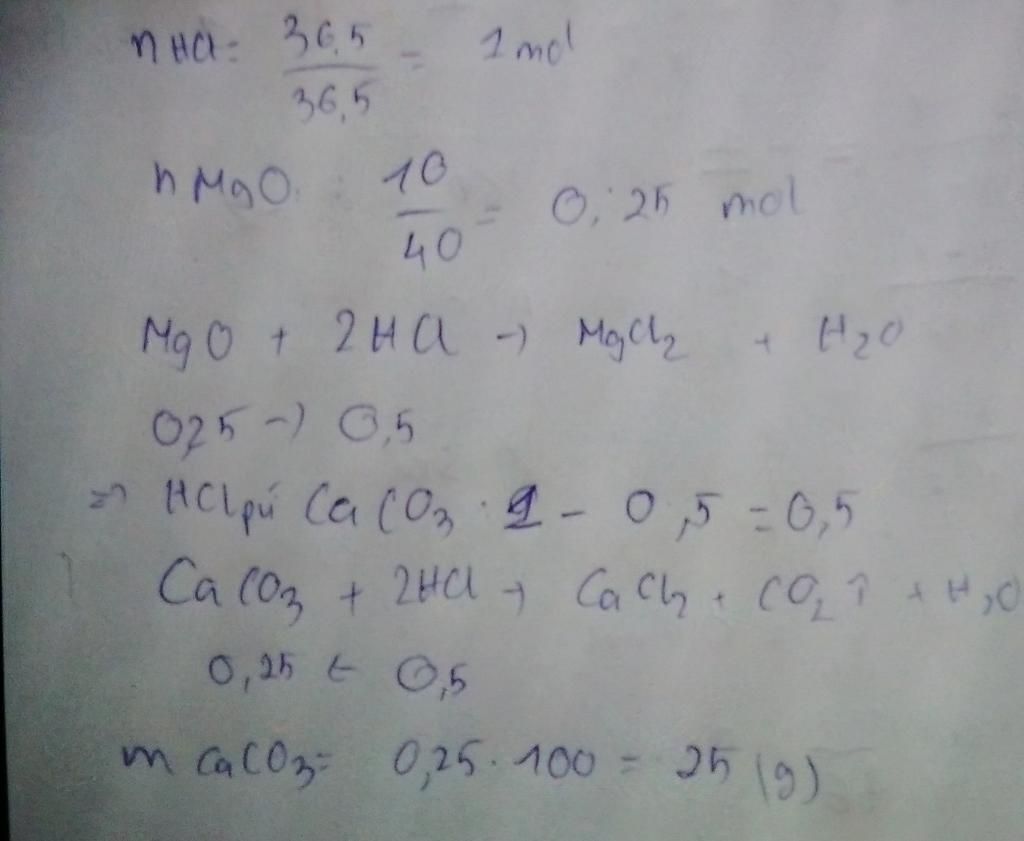 nHCl = 36,5 / 36,5 = 1 mol
nMgO : 10 / 40 = 0,25 mol
MgO + 2HCl → MgCl2 + H2O
0,25 → 0,5
=> HCl pứ CaCO3 : 1 - 0,5 = 0,5
CaCO3 + 2HCl → CaCl2 + CO2↑ + H2O
0,25 ← 0,5
m CaCO3 = 0,25 . 100 = 25 (g)